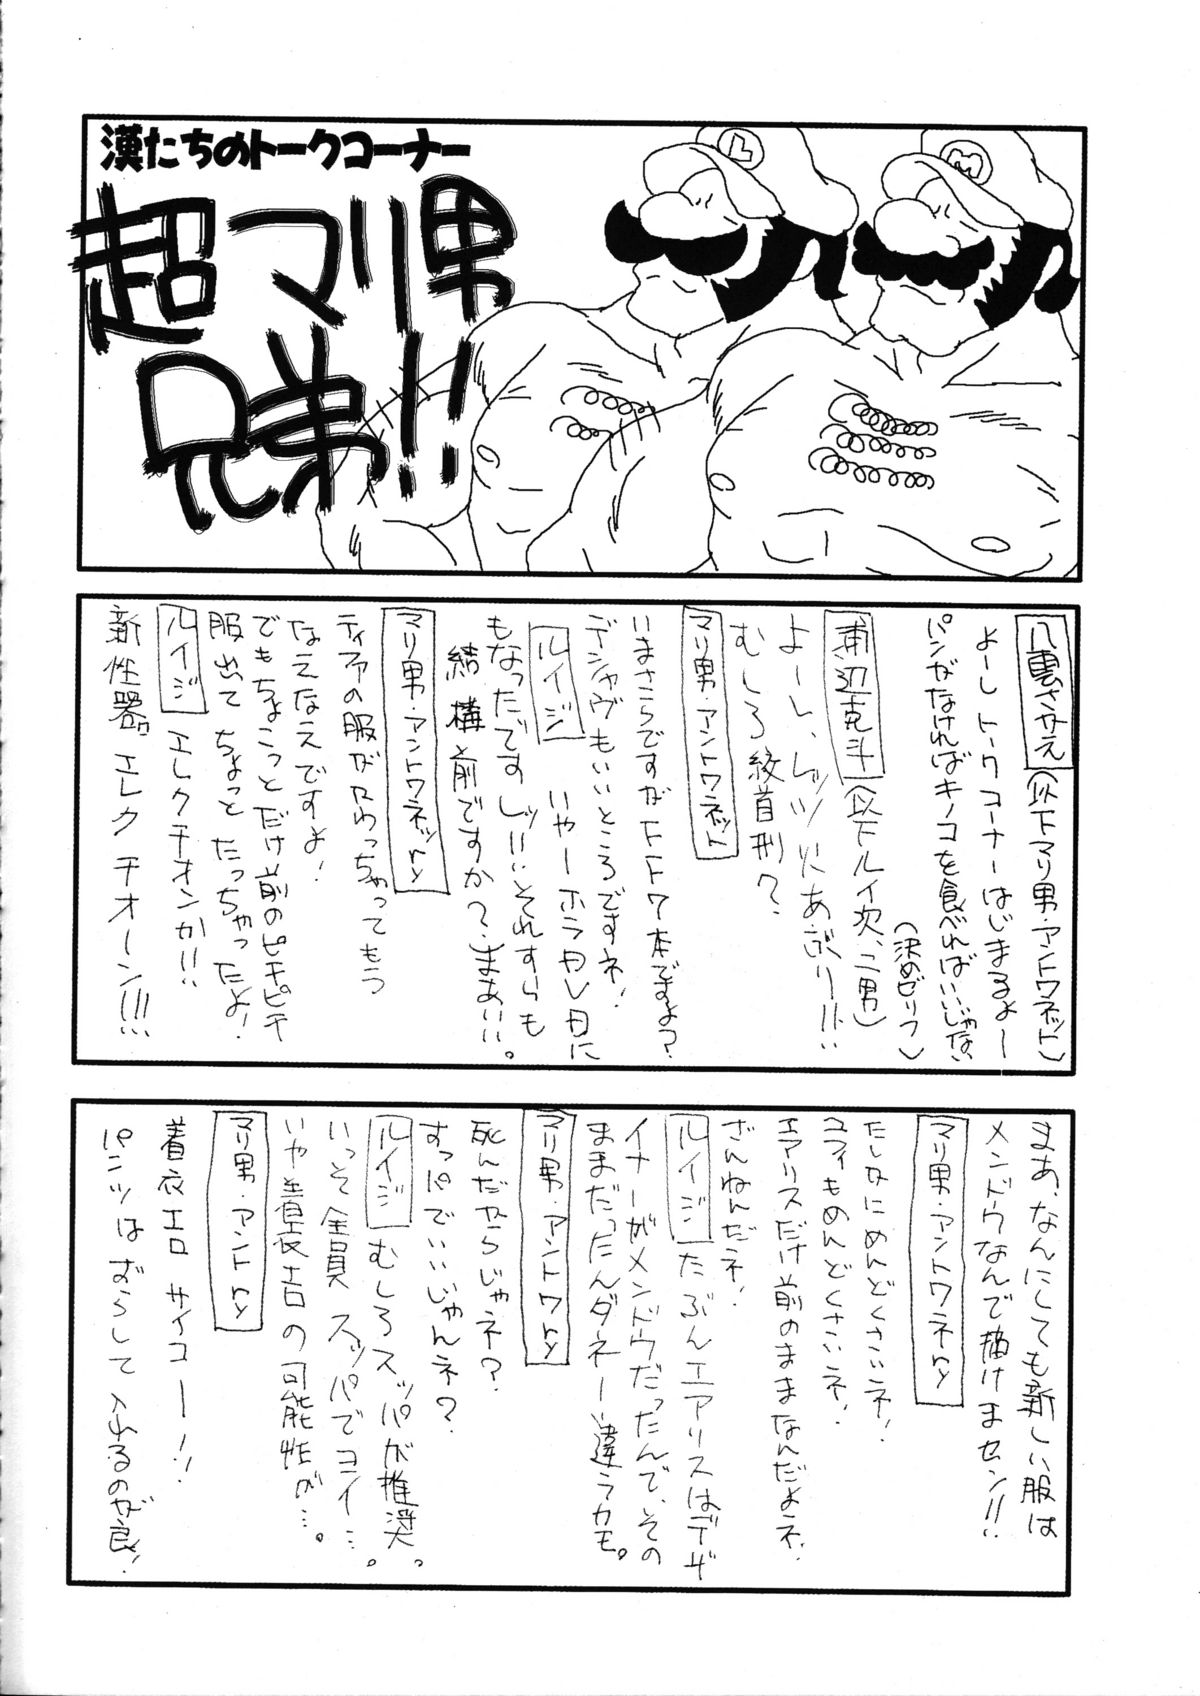 漢たちのトークコーナー
超マリ男
兄弟!!
L
M
八雲さかえ(以下マリ男・アントワネット)
よーし トークコーナーはじまるよー
パンがなければキノコを食べればいいじゃない
(決めゼリフ)
浦辺克斗(以下ルイ次、二男)
よーし、レッツ火あぶりー!!
むしろ絞首刑?
マリ男・アントワネット
いまさらですがFF7本ですよ?
デジャヴもいいところですネ!
ルイジ いやーホラカレ日に
もなったですしッ!!それすらも
結構前ですか?まあいい。
マリ男・アントワネッry
ティファの服がかわっちゃってもう
なえなえですよ!
でもちょこっとだけ前のピチピチ
服出てちょっとたっちゃったよ!
ルイジ エレクチオンか!!!
新性器。エレクチオーン!!!
まあ、なんにしても新しい服は
メンドウなんで描けませン!!
マリ男・アントワネry
たしかにめんどくさいネ!
ユフィもめんどくさいネ!
エアリスだけ前のままなんだよネ!
ざんねんだネ!
ルイジ たぶんエアリスはデザ
イナーがメンドウだったんで、その
ままだったんダネー違うカモ。
マリ男・アントワry
死んだからじゃネ?
すっパでいいじゃんネ?
ルイジ むしろスッパが推奨。
いっそ全員スッパでコイ…。
いや着衣エロの可能性が…。
マリ男・アントry
着衣エロ サイコー!!
パンツはずらして入れるのが良!